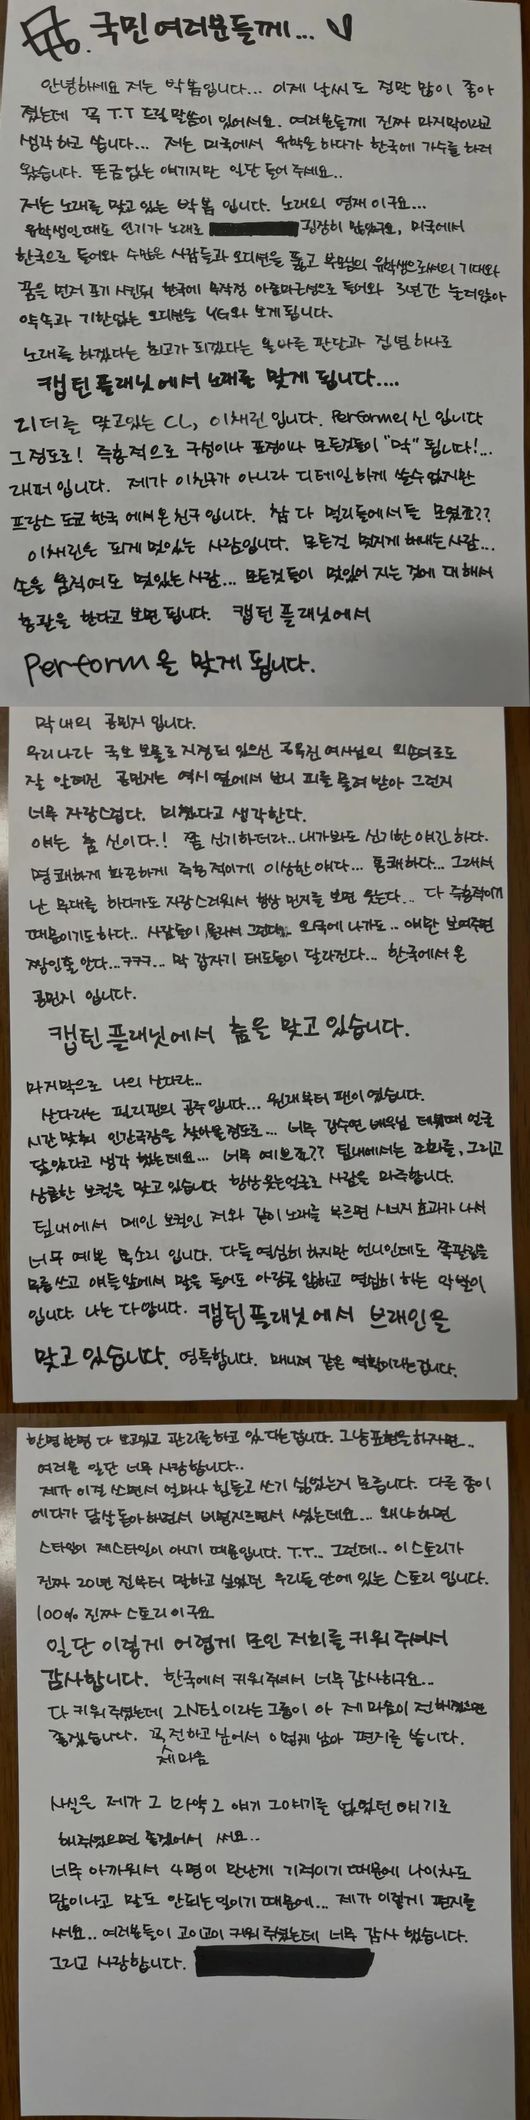 To. 국민여러분들께...
안녕하세요 저는 박봄입니다... 이제 날씨도 정말 많이 좋아
졌는데 꼭 T.T 드릴 말씀이 있어서요. 여러분들께 진짜 마지막이라고
생각하고 씁니다... 저는 미국에서 유학을 하다가 한국에 가수를 하러
왔습니다. 뜬금없는 얘기지만 일단 들어 주세요..
저는 노래를 맞고 있는 박봄 입니다. 노래의 영재 이구요...
유학생인 때도 인기가 노래로 굉장히 많았구요, 미국에서
한국으로 들어와 수많은 사람들과 오디션을 뚫고 부모님의 유학생으로써의 기대와
꿈을 먼저 포기 시킨뒤 한국에 무작정 아줌마근성으로 들어와 3년간 눌러앉아
약속과 기한없는 오디션을 YG와 보게됩니다.
노래를 하겠다는 최고가 되겠다는 올바른 판단과 집념 하나로
캡틴플래닛에서 노래를 맞게 됩니다....
리더를 맞고있는 CL, 이채린 입니다. Perform의 신 입니다
그정도로! 즉흥적으로 구성이나 표정이나 모든것들이 "막" 됩니다!...
래퍼입니다. 제가 이친구가 아니라 디테일하게 쓸수 없지만
프랑스 도쿄 한국 에서 온 친구 입니다. 참 다 멀리들에서들 모였죠??
이채린은 되게 멋있는 사람입니다. 모든걸 멋지게 해내는 사람...
손을 움직여도 멋있는 사람... 모든것들이 멋있어 지는 것에 대해서
총괄을 한다고 보면 됩니다. 캡틴 플래닛에서
Perform을 맞게 됩니다.
막내의 공민지 입니다.
우리나라 국보 보물로 지정되 있으신 공옥진 여사님의 외손녀로도
잘 알려진 공민지는 역시 옆에서 보니 피를 물려 받아 그런지
너무 자랑스럽다. 미쳤다고 생각한다.
얘는 춤 신이다.! 쫌 신기하더라.. 내가봐도 신기한 얘긴 하다.
명쾌하게 화끈하게 즉흥적이게 이상한 얘다... 통쾌하다... 그래서
난 무대를 하다가도 자랑스러워서 항상 민지를 보면 웃는다... 다 즉흥적이기
때문이기도 하다.. 사람들이 몰라서 그런다.. 외국에 나가도.. 얘만 보여주면
짱인줄 안다...ㅋㅋㅋ... 막 갑자기 태도들이 달라진다... 한국에서 온
공민지 입니다.
캡틴플래닛에서 춤을 맞고 있습니다.
마지막으로 나의 산다라...
산다라는 필리핀의 공주입니다... 원래부터 팬이였습니다.
시간 맞춰 인간극장을 찾아볼 정도로... 너무 강수연 배우님 데뷔때 얼굴
닮았다고 생각 했는데요... 너무 예쁘죠?? 팀내에서는 조화를, 그리고
상큼한 보컬을 맞고 있습니다 항상 웃는얼굴로 사람을 마주합니다.
팀내에서 메인 보컬인 저와 같이 노래를 부르면 시너지 효과가 나서
너무 예쁜 목소리 입니다. 다들 열심히 하지만 언니인데도 쪽팔림을
무릅쓰고 얘들 앞에서 말을 들어도 아랑곳 않하고 열심히 하는 악발이
입니다. 나는 다 압니다. 캡틴플래닛에서 브래인을
맞고 있습니다. 영특합니다. 매니저 같은 역할이라는겁니다.
한명한명 다 보고있고 관리를 하고 있다는 겁니다. 그냥 표현을 하자면..
여러분 일단 너무 사랑합니다..
제가 이걸 쓰면서 얼마나 힘들고 쓰기 싫었는지 모릅니다. 다른 종이
에다가 닭살 돋아 하면서 비명지르면서 썼는데요... 왜냐하면
스타일이 제스타일이 아니기 때문입니다. T.T... 그런데.. 이 스토리가
진짜 20년 전부터 말하고 싶었던 우리들 안에 있는 스토리 입니다.
100% 진짜 스토리 이구요
일단 이렇게 어렵게 모인 저희를 키워 주셔서
감사합니다. 한국에서 키워주셔서 너무 감사하구요...
다 키워주셨는데 2NE1이라는 그룹이 아 제 마음이 전해졌으면
좋겠습니다. 꼭 전하고 싶어서 이렇게 남아 편지를 씁니다.
제마음
사실은 제가 그 마약 그 얘기 그 얘기를 없었던 얘기로
해주셨으면 좋겠어서 써요..
너무 아까워서 4명이 만난게 기적이기 때문에 나이차도
많이나고 말도 안되는 일이기 때문에... 제가 이렇게 편지를
써요.. 여러분들이 고이고이 키워 주셨는데 너무 감사 했습니다.
그리고 사랑합니다.